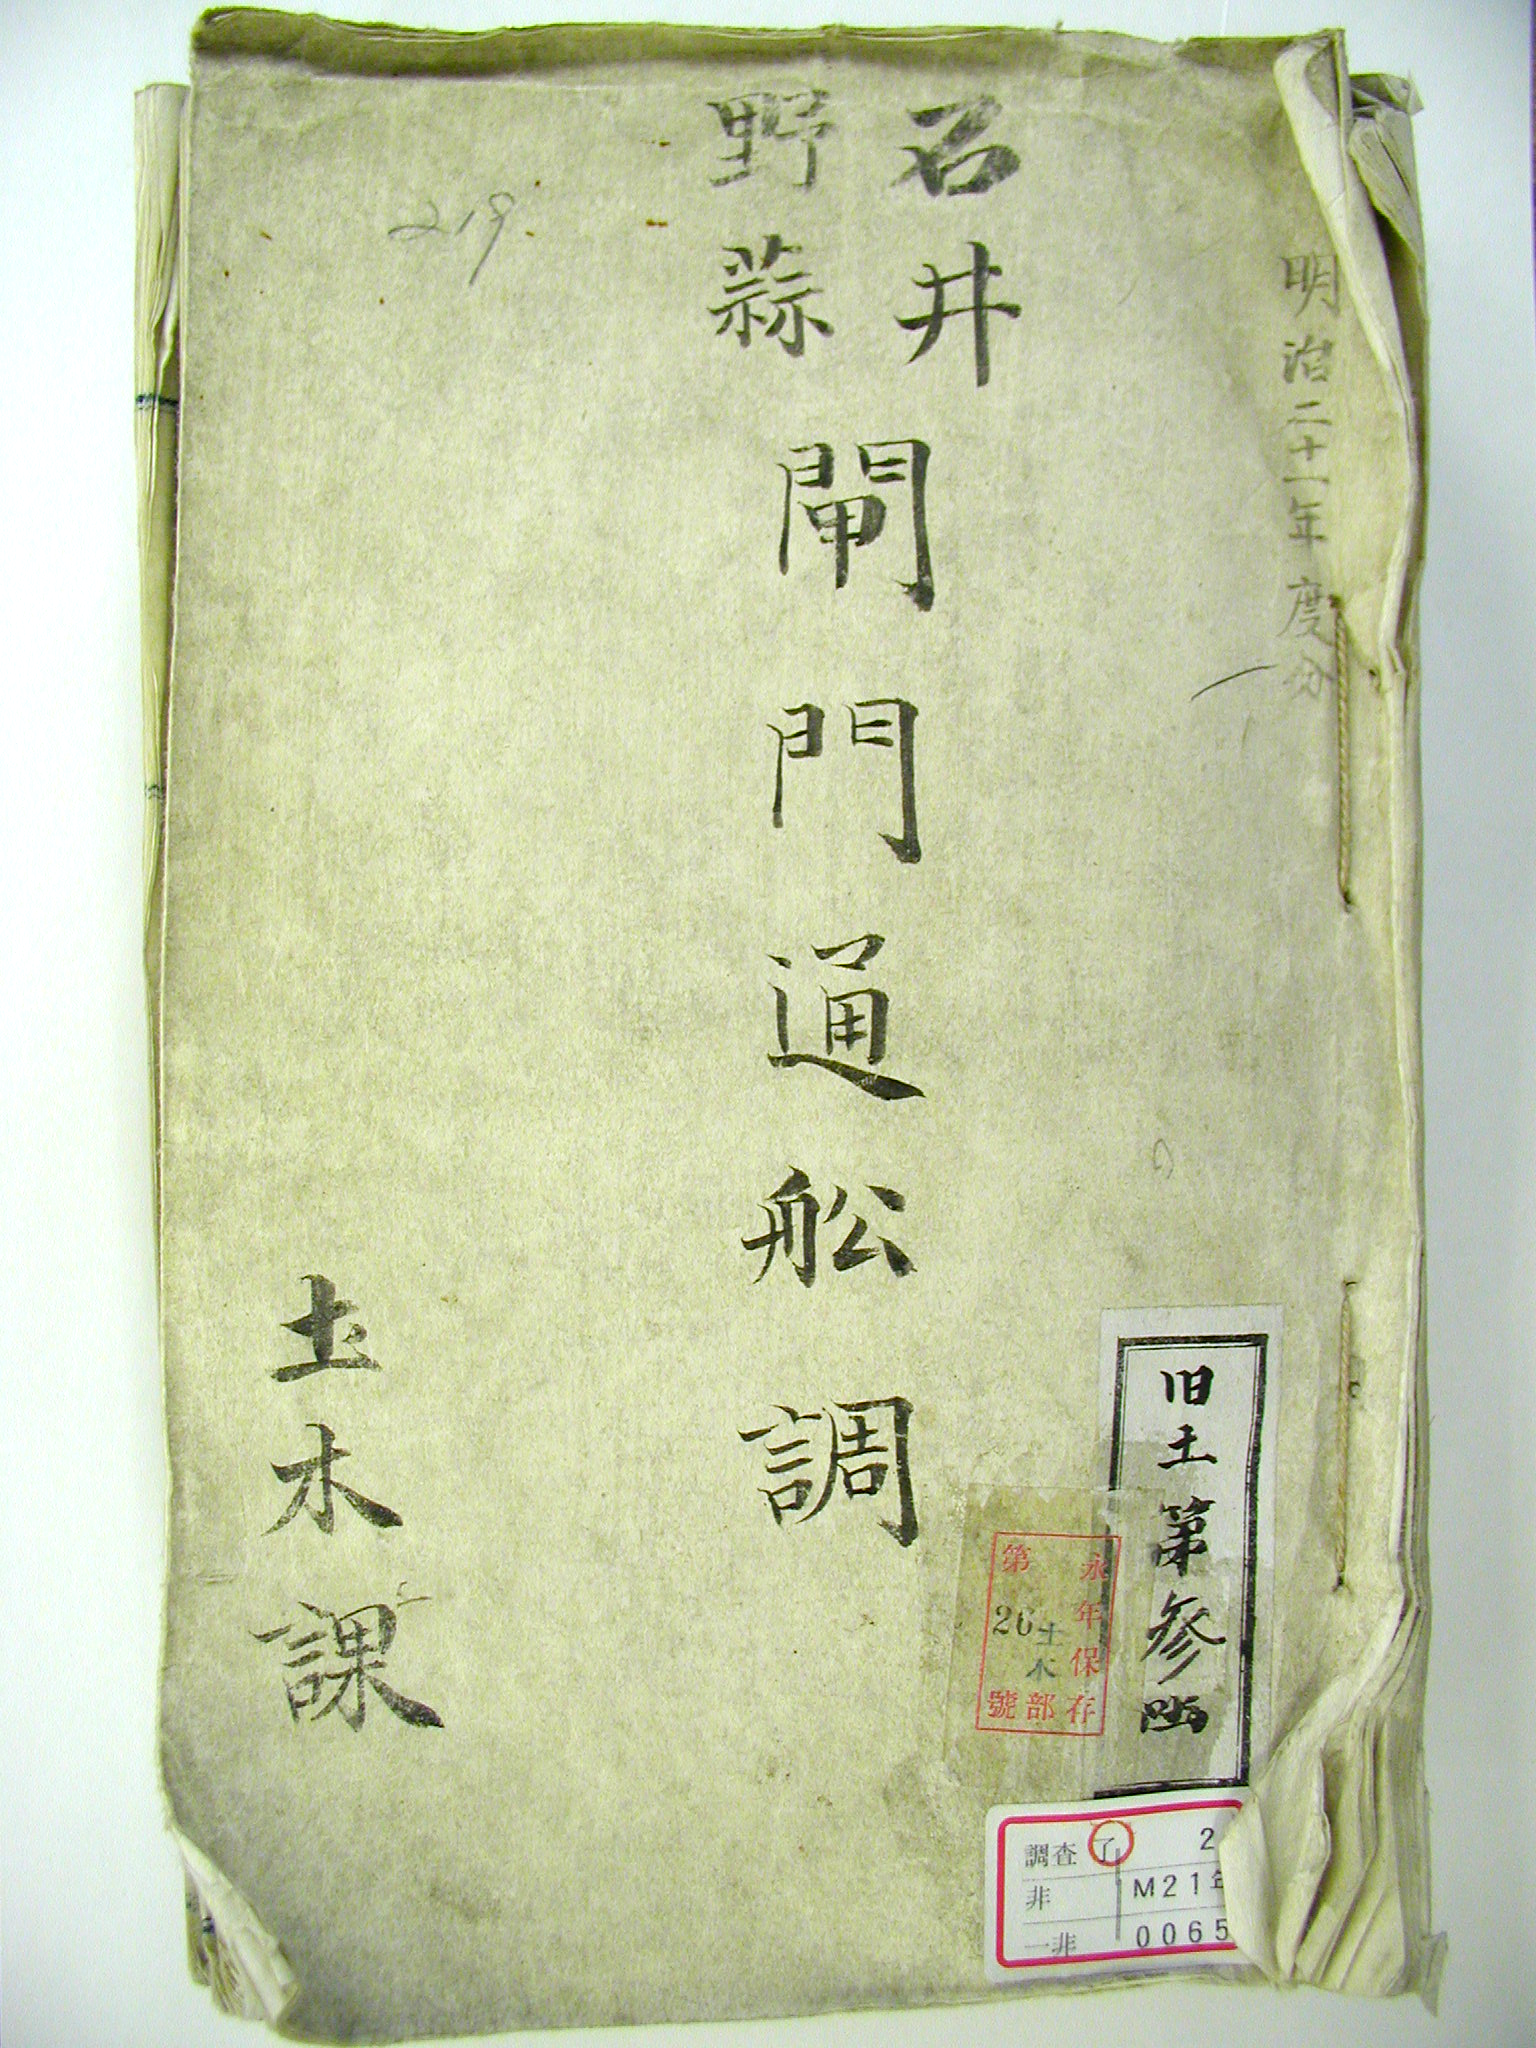 明治二十一年度分
石井
野蒜
閘門通舩調
土木課
219
旧土第参凾
永年保存
土木部
第26號
調査 了 2
非 M21年
一非 0065